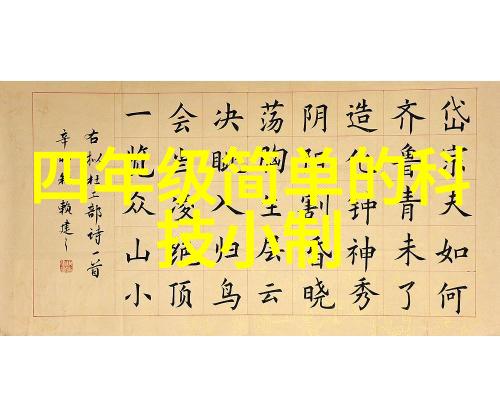 四年级简单的科
技小制
岱宗夫如何
齐鲁青未了
造化钟神秀
阴阳割昏晓
荡胸生层云
决眦入归鸟
会当凌绝顶
一览众山小
右拟杜工部诗一首
辛 赖建